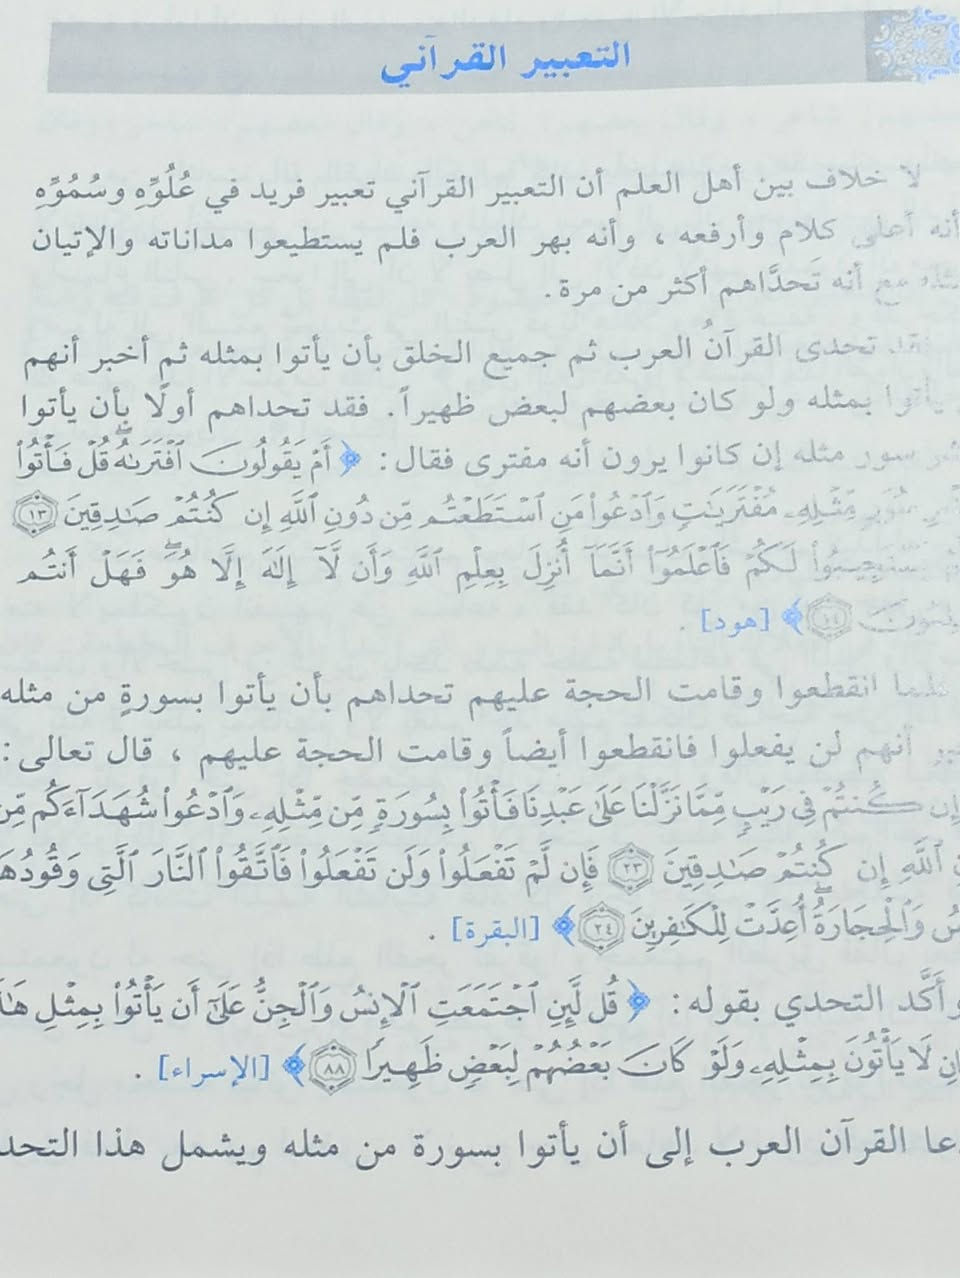 التعبير القرآني
لا خلاف بين أهل العلم أن التعبير القرآني تعبير فريد في عُلُوِّهِ وسُمُوِّهِ
أنه أعلى كلام وأرفعه ، وأنه بهر العرب فلم يستطيعوا مداناته والإتيان
مع أنه تَحدَّاهم أكثر من مرة .
فقد تحدى القرآنُ العرب ثم جميع الخلق بأن يأتوا بمثله ثم أخبر أنهم
يأتوا بمثله ولو كان بعضهم لبعض ظهيراً . فقد تحداهم أولًا بأن يأتوا
سور مثله إن كانوا يرون أنه مفترى فقال : ﴿ أَمْ يَقُولُونَ ٱفْتَرَىٰهُ ۖ قُلْ فَأْتُوا۟
سُوَرٍ مِّثْلِهِۦ مُفْتَرَيَـٰتٍ وَٱدْعُوا۟ مَنِ ٱسْتَطَعْتُم مِّن دُونِ ٱللَّهِ إِن كُنتُمْ صَـٰدِقِينَ ۝١٣
لَكُمْ فَٱعْلَمُوٓا۟ أَنَّمَآ أُنزِلَ بِعِلْمِ ٱللَّهِ وَأَن لَّآ إِلَـٰهَ إِلَّا هُوَ ۖ فَهَلْ أَنتُم
۝١٤ ﴾ [هود] .
فلما انقطعوا وقامت الحجة عليهم تحداهم بأن يأتوا بسورةٍ من مثله
أنهم لن يفعلوا فانقطعوا أيضاً وقامت الحجة عليهم ، قال تعالى :
إِن كُنتُمْ فِى رَيْبٍ مِّمَّا نَزَّلْنَا عَلَىٰ عَبْدِنَا فَأْتُوا۟ بِسُورَةٍ مِّن مِّثْلِهِۦ وَٱدْعُوا۟ شُهَدَآءَكُم مِّن
ٱللَّهِ إِن كُنتُمْ صَـٰدِقِينَ ۝٢٣ فَإِن لَّمْ تَفْعَلُوا۟ وَلَن تَفْعَلُوا۟ فَٱتَّقُوا۟ ٱلنَّارَ ٱلَّتِى وَقُودُهَا
وَٱلْحِجَارَةُ ۖ أُعِدَّتْ لِلْكَـٰفِرِينَ ۝٢٤ ﴾ [البقرة] .
وأَكَّد التحدي بقوله : ﴿ قُل لَّئِنِ ٱجْتَمَعَتِ ٱلْإِنسُ وَٱلْجِنُّ عَلَىٰٓ أَن يَأْتُوا۟ بِمِثْلِ هَـٰذَا
لَا يَأْتُونَ بِمِثْلِهِۦ وَلَوْ كَانَ بَعْضُهُمْ لِبَعْضٍ ظَهِيرًا ۝٨٨ ﴾ [الإسراء] .
دعا القرآن العرب إلى أن يأتوا بسورة من مثله ويشمل هذا التحد